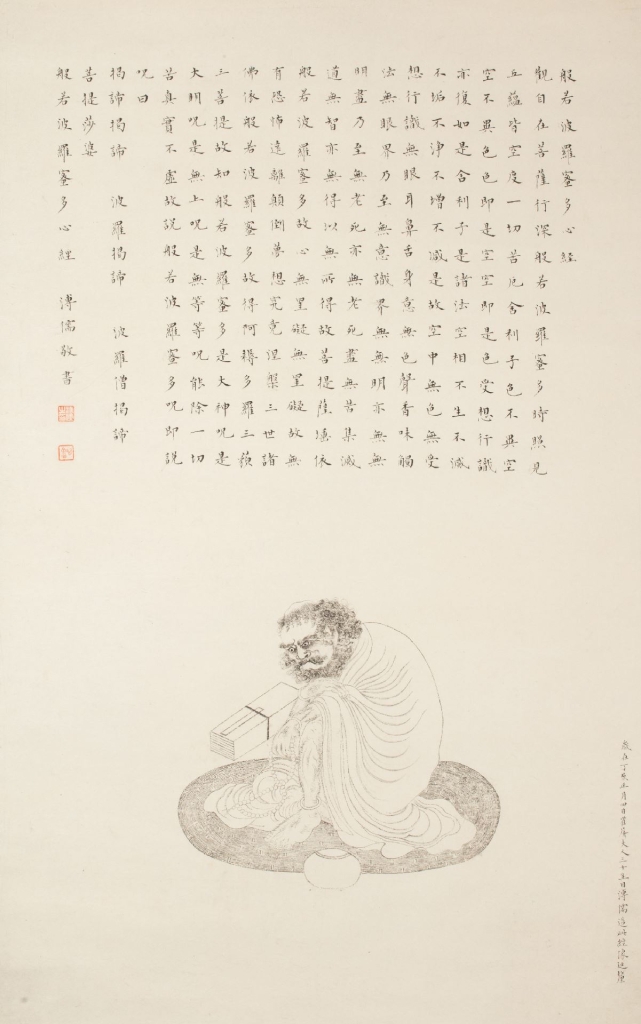 般若波羅蜜多心經
觀自在菩薩行深般若波羅蜜多時照見
五蘊皆空度一切苦厄舍利子色不異空
空不異色色即是空空即是色受想行識
亦復如是舍利子是諸法空相不生不滅
不垢不淨不增不減是故空中無色無受
想行識無眼耳鼻舌身意無色聲香味觸
法無眼界乃至無意識界無無明亦無無
明盡乃至無老死亦無老死盡無苦集滅
道無智亦無得以無所得故菩提薩埵依
般若波羅蜜多故心無罣礙無罣礙故無
有恐怖遠離顛倒夢想究竟涅槃三世諸
佛依般若波羅蜜多故得阿耨多羅三藐
三菩提故知般若波羅蜜多是大神呪是
大明呪是無上呪是無等等呪能除一切
苦真實不虛故說般若波羅蜜多呪即說
呪曰
揭諦揭諦 波羅揭諦 波羅僧揭諦
菩提莎婆
般若波羅蜜多心經 溥儒敬書
歲在丁亥 月四日 夫人三十生日溥儒造此經像